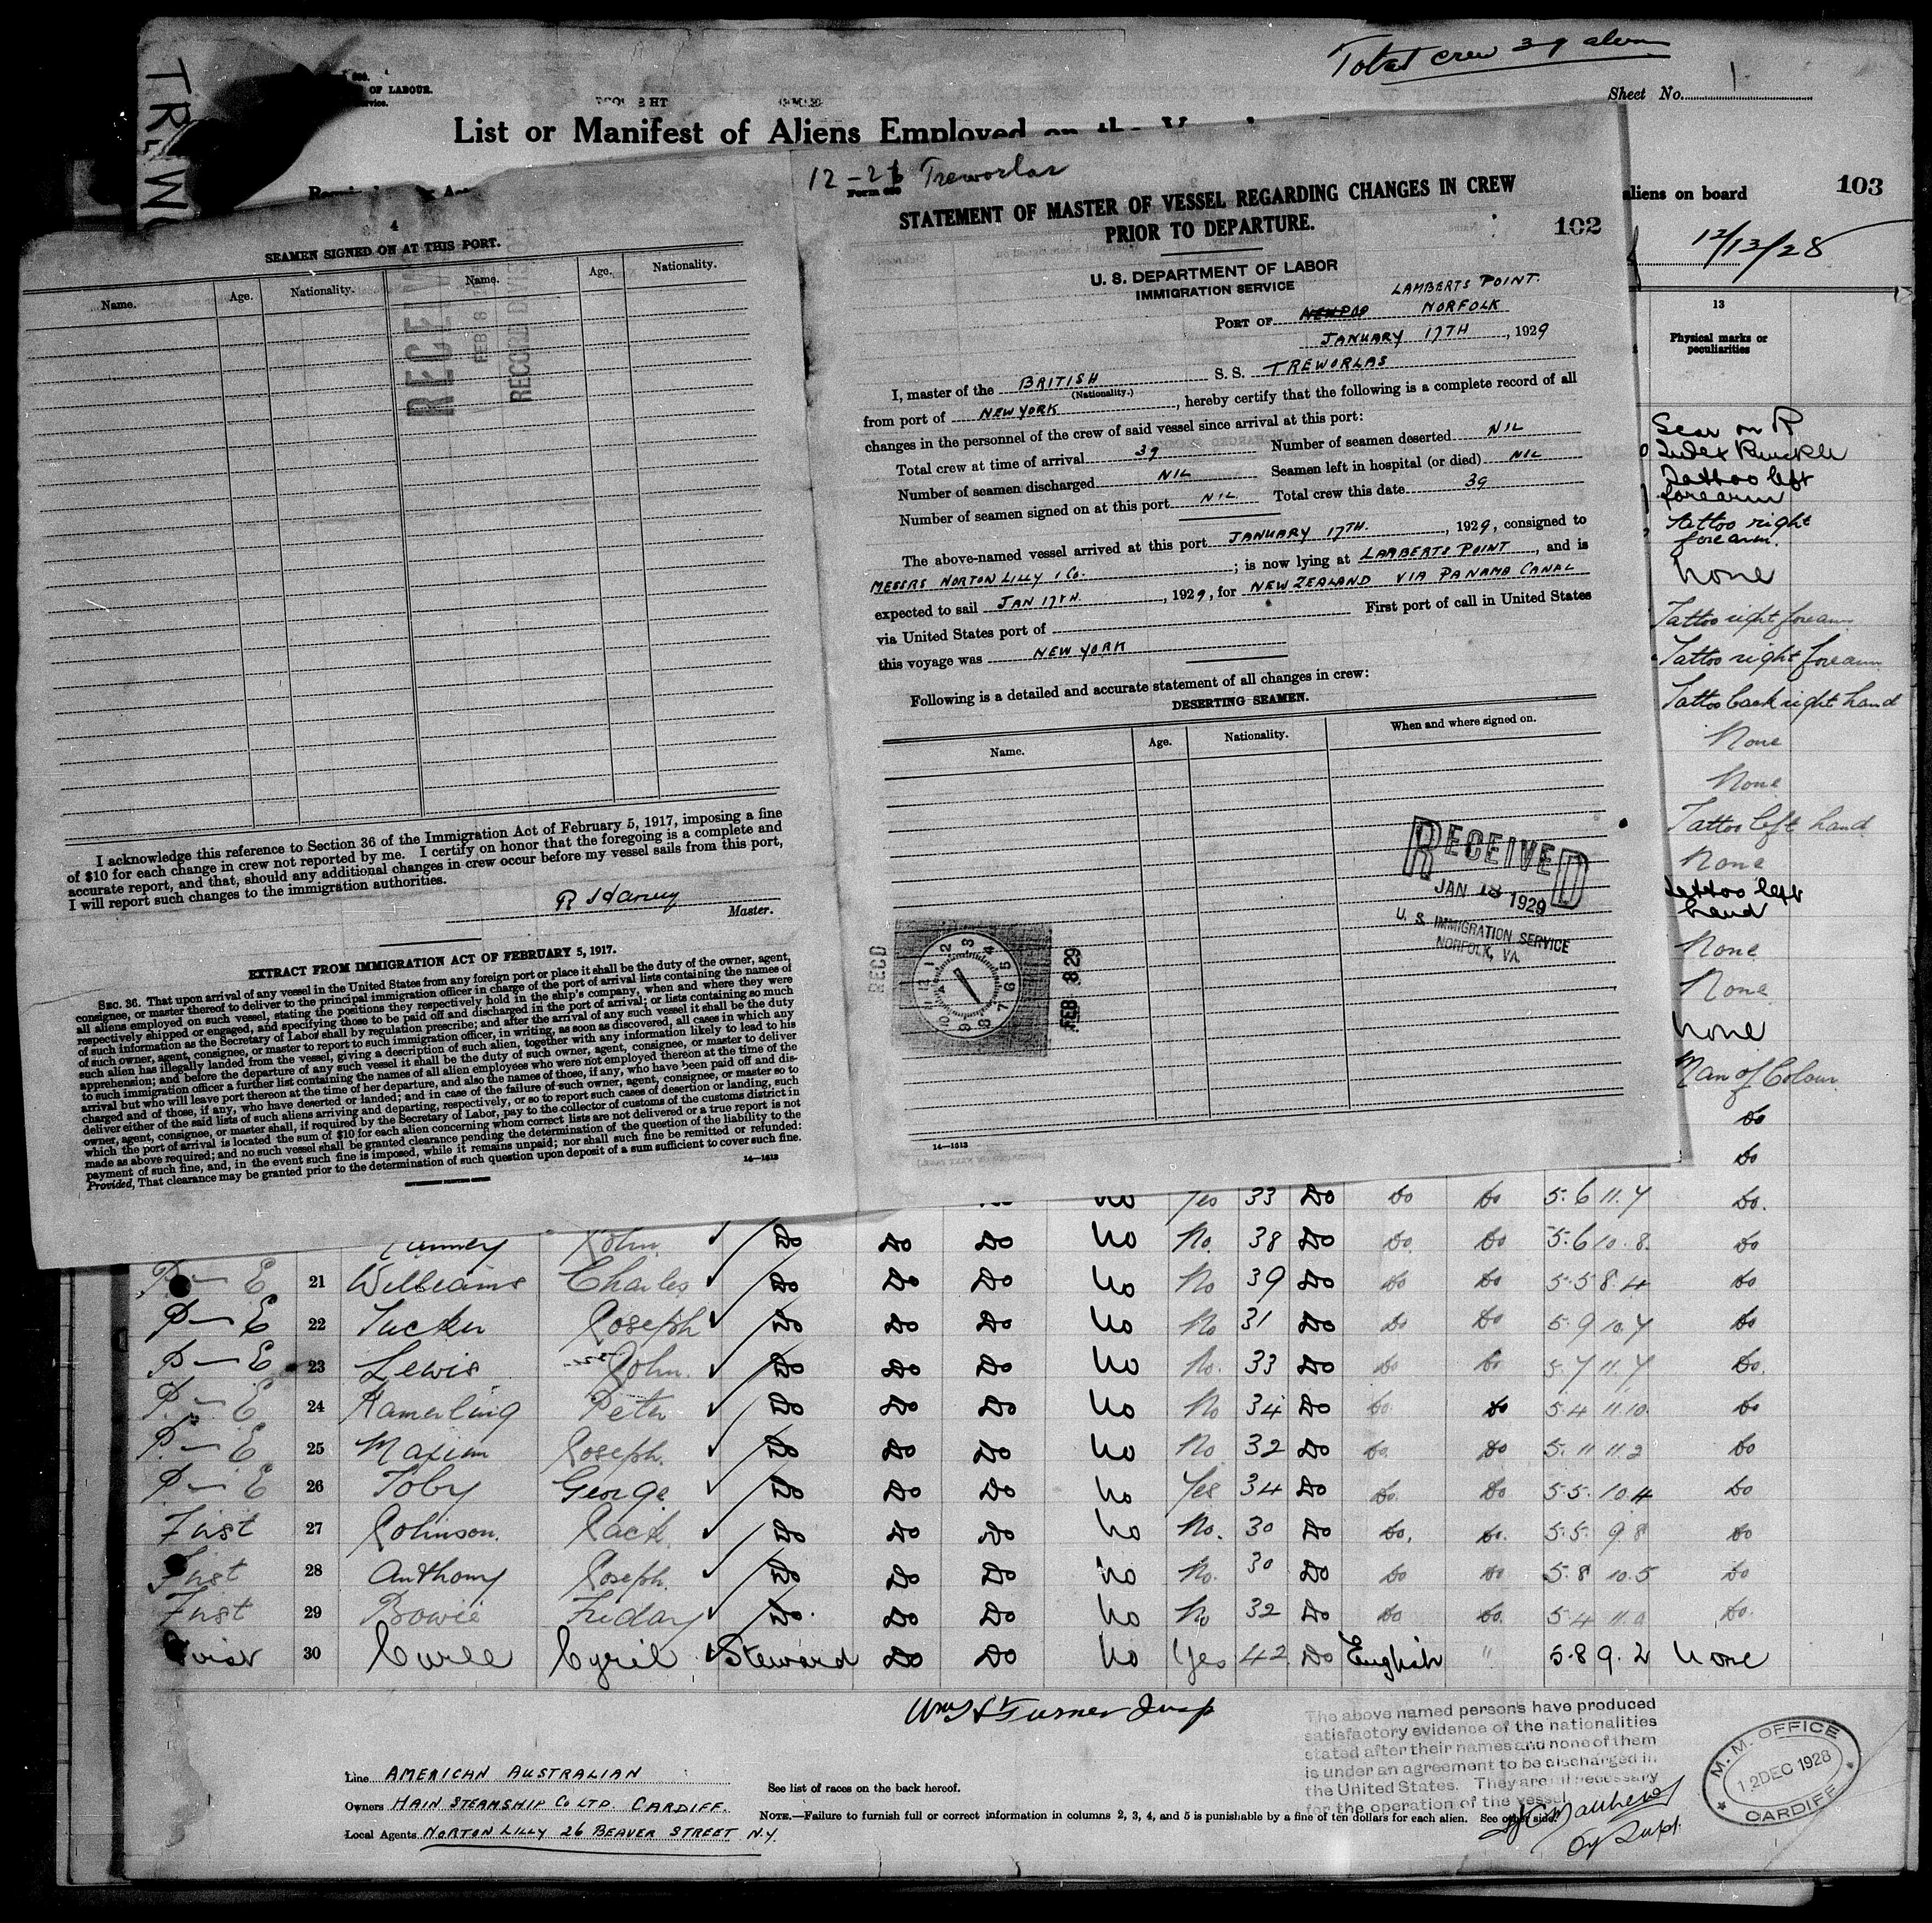 Total crew 39 aliens
OF LABOUR.
Sheet No. 1
List or Manifest of Aliens Employed on the
aliens on board
103
12/13/28
13
Physical marks or
peculiarities
4
SEAMEN SIGNED ON AT THIS PORT.
Name. Age. Nationality. Name. Age. Nationality.
FEB 8
RECORD DIVISION
I acknowledge this reference to Section 36 of the Immigration Act of February 5, 1917, imposing a fine
of $10 for each change in crew not reported by me. I certify on honor that the foregoing is a complete and
accurate report, and that, should any additional changes in crew occur before my vessel sails from this port,
I will report such changes to the immigration authorities.
R Harvey
Master.
EXTRACT FROM IMMIGRATION ACT OF FEBRUARY 5, 1917.
SEC. 36. That upon arrival of any vessel in the United States from any foreign port or place it shall be the duty of the owner, agent,
consignee, or master thereof to deliver to the principal immigration officer in charge of the port of arrival lists containing the names of
all aliens employed on such vessel, stating the positions they respectively hold in the ship's company, when and where they were
respectively shipped or engaged, and specifying those to be paid off and discharged in the port of arrival; or lists containing so much
of such information as the Secretary of Labor shall by regulation prescribe; and after the arrival of any such vessel it shall be the duty
of such owner, agent, consignee, or master to report to such immigration officer, in writing, as soon as discovered, all cases in which any
such alien has illegally landed from the vessel, giving a description of such alien, together with any information likely to lead to his
apprehension; and before the departure of any such vessel it shall be the duty of such owner, agent, consignee, or master to deliver
to such immigration officer a further list containing the names of all alien employees who were not employed thereon at the time of the
arrival but who will leave port thereon at the time of her departure, and also the names of those, if any, who have been paid off and dis-
charged and of those, if any, who have deserted or landed; and in case of the failure of such owner, agent, consignee, or master so to
deliver either of the said lists of such aliens arriving and departing, respectively, or so to report such cases of desertion or landing, such
owner, agent, consignee, or master shall, if required by the Secretary of Labor, pay to the collector of customs of the customs district in
which the port of arrival is located the sum of $10 for each alien concerning whom correct lists are not delivered or a true report is not
made as above required; and no such vessel shall be granted clearance pending the determination of the question of the liability to the
payment of such fine, and, in the event such fine is imposed, while it remains unpaid; nor shall such fine be remitted or refunded:
Provided, That clearance may be granted prior to the determination of such question upon deposit of a sum sufficient to cover such fine.
14—1613
GOVERNMENT PRINTING OFFICE
12-21 Treworlas
Form 680
STATEMENT OF MASTER OF VESSEL REGARDING CHANGES IN CREW
PRIOR TO DEPARTURE.
102
U. S. DEPARTMENT OF LABOR
IMMIGRATION SERVICE
LAMBERTS POINT.
PORT OF NORFOLK
JANUARY 17TH, 1929
I, master of the BRITISH S. S. TREWORLAS
(Nationality.)
from port of NEW YORK, hereby certify that the following is a complete record of all
changes in the personnel of the crew of said vessel since arrival at this port:
Total crew at time of arrival 39 Number of seamen deserted NIL
Number of seamen discharged NIL Seamen left in hospital (or died) NIL
Number of seamen signed on at this port NIL Total crew this date 39
The above-named vessel arrived at this port JANUARY 17TH., 1929, consigned to
MESSRS NORTON LILLY & CO.; is now lying at LAMBERTS POINT, and is
expected to sail JAN 17TH., 1929, for NEW ZEALAND VIA PANAMA CANAL
via United States port of First port of call in United States
this voyage was NEW YORK
Following is a detailed and accurate statement of all changes in crew:
DESERTING SEAMEN.
Name. Age. Nationality. When and where signed on.
RECEIVED
JAN 18 1929
U. S. IMMIGRATION SERVICE
NORFOLK, VA.
RECD
1 2 3 4 5 6 7 8 9 10 11 12
FEB 8 29
14—1613
Scar on R
Index Knuckle
Tattoo left
forearm
Tattoo right
forearm.
None
Tattoo right forearm
Tattoo right forearm
Tattoo back right hand
None
None
Tattoo left hand
None
Tattoo left
hand
None
None
None
Man of Colour
Do
Do
no Yes 33 Do Do Do 5.6 11.7 Do.
John Do Do Do No No. 38 Do Do Do 5.6 10.8. Do
P—E 21 Williams Charles Do Do Do No No 39 Do Do Do 5.5 8.4 Do
P—E 22 Tucker Joseph Do Do Do No No 31 Do Do Do 5.9 10.7 Do
P—E 23 Lewis John. Do Do Do No No. 33 Do Do Do 5.7 11.7 Do.
P—E 24 Kamerling Peter Do Do Do No No 34 Do Do Do 5.4 11.10. Do
P—E 25 Maxim Joseph. Do Do Do No No 32 Do Do. Do 5.11 11.2 Do
P—E 26 Toby George. Do Do Do No Yes 34 Do Do. Do 5.5. 10.4 Do
First 27 Johnson. Jack. Do Do Do No No. 30 Do Do. Do. 5.5. 9.8 Do
First 28 Anthony Joseph. Do Do Do No No. 30 Do Do Do 5.8 10.5 Do
First 29 Bowie Friday Do. Do Do No No 32 Do Do Do. 5.4 11.0 Do.
First 30 Curle Cyril Steward Do Do No Yes 42 Do English " 5.8 9.2 None
Wm S Turner Insp
The above named persons have produced
satisfactory evidence of the nationalities
stated after their names and none of them
is under an agreement to be discharged in
the United States. They are all necessary
for the operation of the vessel
Line AMERICAN AUSTRALIAN
Owners HAIN STEAMSHIP CO LTD. CARDIFF.
Local Agents NORTON LILLY 26 BEAVER STREET N.Y.
See list of races on the back hereof.
NOTE.—Failure to furnish full or correct information in columns 2, 3, 4, and 5 is punishable by a fine of ten dollars for each alien. See other side.
Matthews
Dy Supt.
M. M. OFFICE
12 DEC 1928
CARDIFF